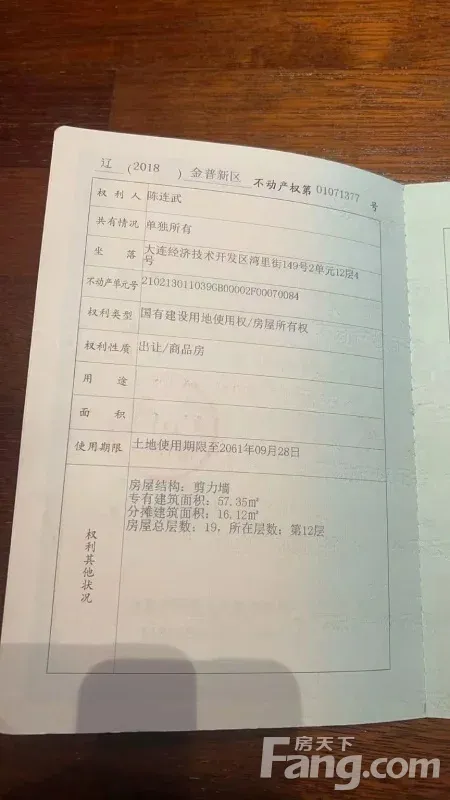 辽（2018）金普新区不动产权第01071377号
权利人 陈连武
共有情况 单独所有
坐落 大连经济技术开发区湾里街149号2单元12层4
号
不动产单元号 210213011039GB00002F00070084
权利类型 国有建设用地使用权/房屋所有权
权利性质 出让/商品房
用途
面积
使用期限 土地使用期限至2061年09月28日
权利其他状况
房屋结构：剪力墙
专有建筑面积：57.35㎡
分摊建筑面积：16.12㎡
房屋总层数：19，所在层数：第12层
房天下
Fang.com